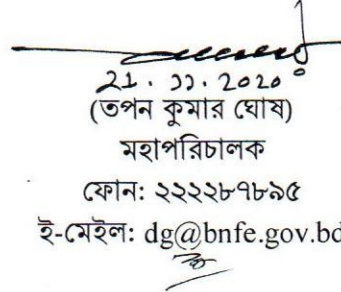 ২১. ১১. ২০২০
(তপন কুমার ঘোষ)
মহাপরিচালক
ফোন: ২২২২৮৭৮৯৫
ই-মেইল: dg@bnfe.gov.bd